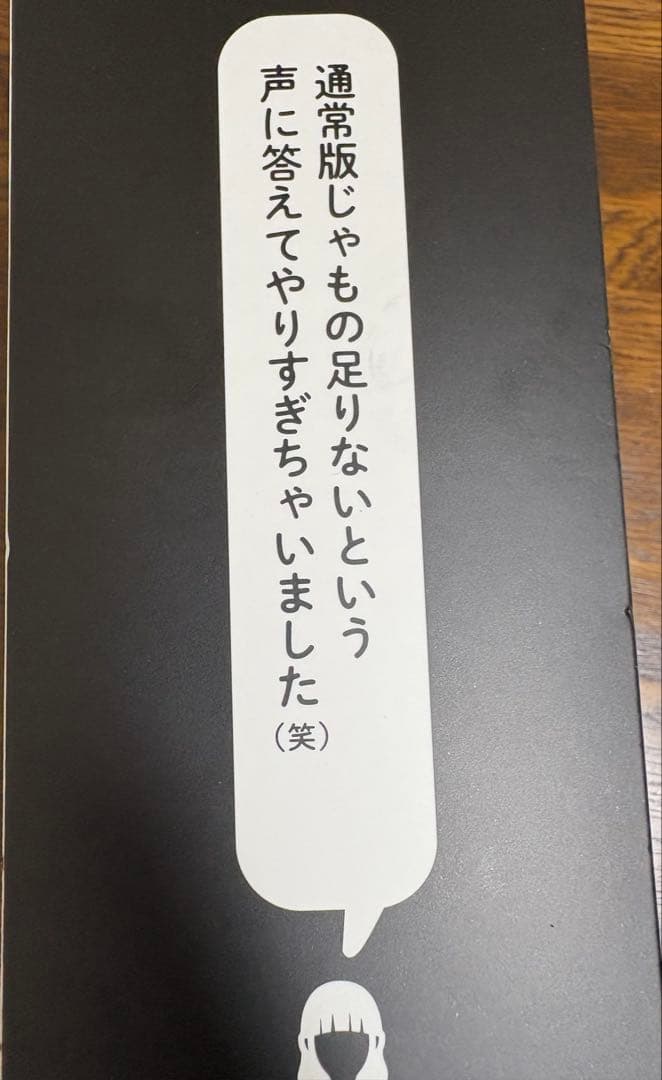 通常版じゃもの足りないという
声に答えてやりすぎちゃいました
（笑）